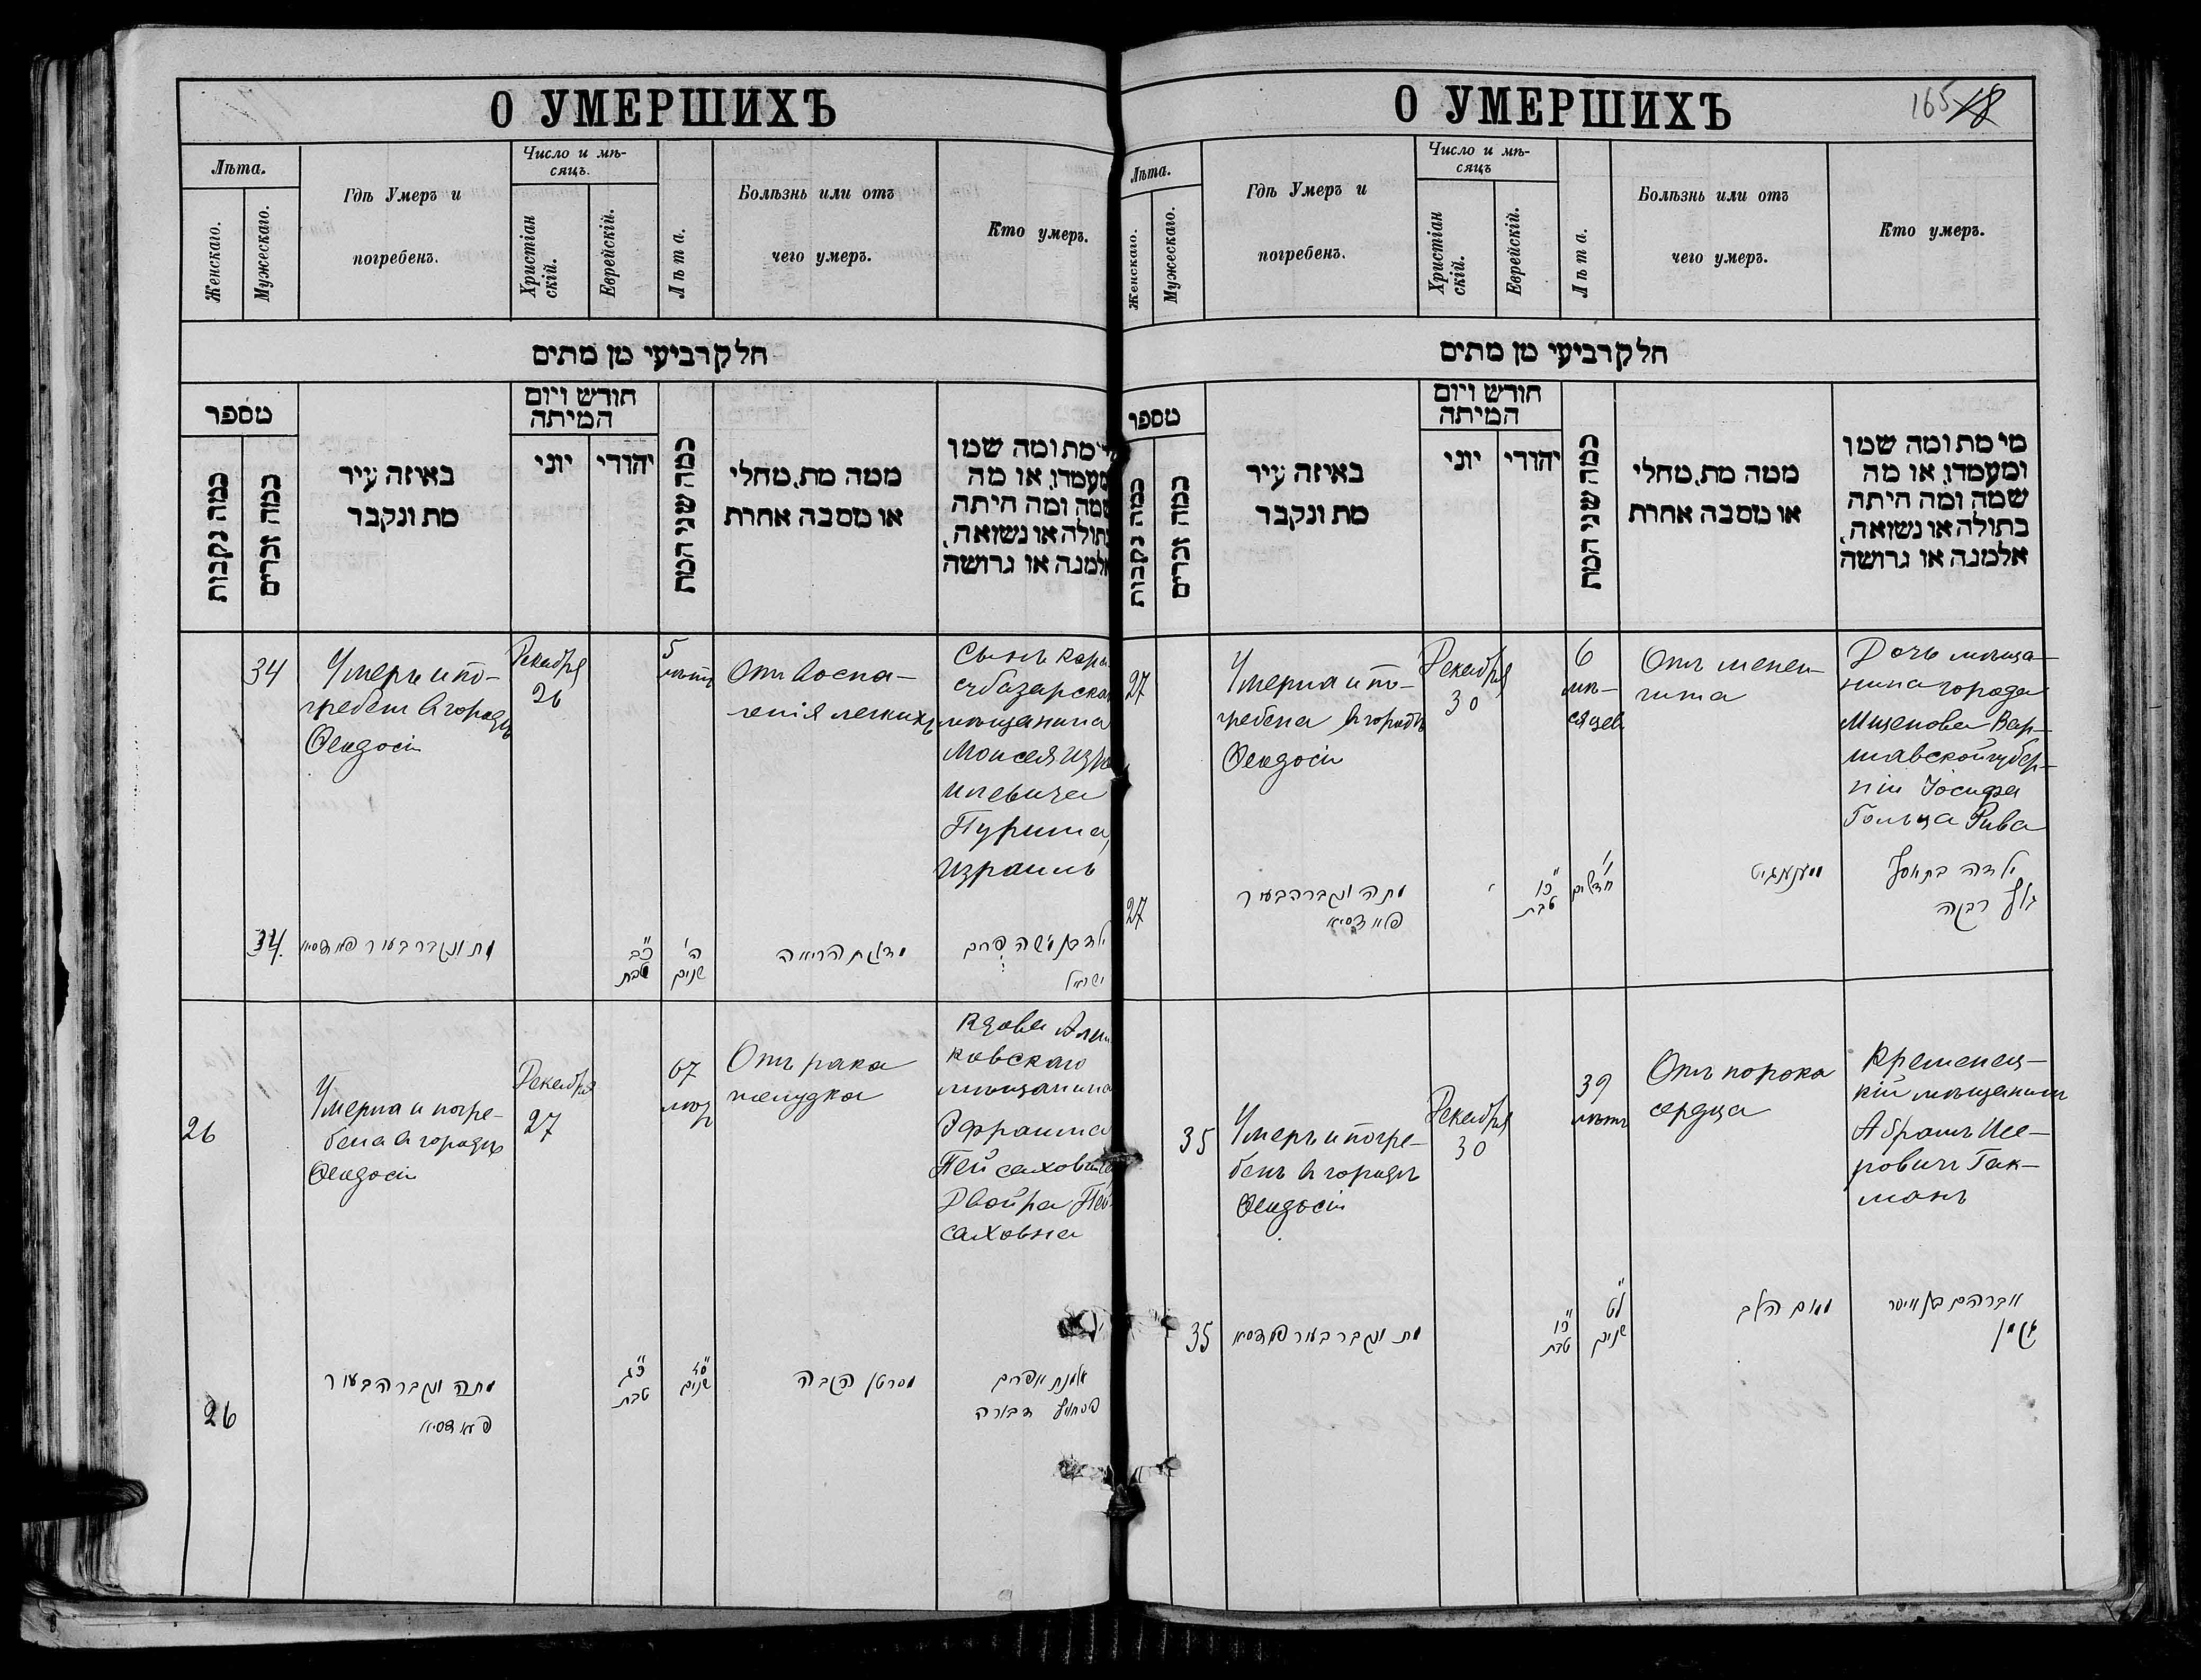 О УМЕРШИХЪ
Лѣта.
Женскаго.
Мужескаго.
Гдѣ Умеръ и
погребенъ.
Число и мѣ-
сяцъ.
Христіан
скій.
Еврейскій.
Лѣта.
Болѣзнь или отъ
чего умеръ.
Кто умеръ.
חלק רביעי מן מתים
מספר
כמה נקבות
כמה זכרים
באיזה עיר
מת ונקבר
חודש ויום
המיתה
יוני
יהודי
כמה שני המת
ממה מת, מחלי
או מסבה אחרת
מי מת ומה שמו
ומעמדו, או מה
שמה ומה היתה
בתולה או נשואה,
אלמנה או גרושה
34
Умеръ и по-
гребенъ въ городѣ
Ѳеодосіи
Декабря
26
5
лѣтъ
Отъ воспа-
ленія легкихъ
Сынъ Кара
субазарскаго
мѣщанина
Моисея Изра
илевича
Пурима,
Израиль
34.
מת ונקבר בעיר פעאדסיא
כ״ב
טבת
ה'
שנים
מדלקת הריאה
ילד בן משה פורים
ישראל
26
Умерла и погре-
бена въ городѣ
Ѳеодосіи
Декабря
27
67
лѣтъ
Отъ рака
желудка
Вдова
ковскаго
мѣщанина
Эфраима
Пейсаховича
Двойра Пей-
саховна
26
מתה ונקברה בעיר
פעאדסיא
כ״ג
טבת
ס״ז
שנים
מסרטן הקבה
אלמנת אפרים
דבורה
О УМЕРШИХЪ
165
18
Лѣта.
Женскаго.
Мужескаго.
Гдѣ Умеръ и
погребенъ.
Число и мѣ-
сяцъ
Христіан
скій.
Еврейскій.
Лѣта.
Болѣзнь или отъ
чего умеръ.
Кто умеръ.
חלק רביעי מן מתים
מספר
כמה נקבות
כמה זכרים
באיזה עיר
מת ונקבר
חודש ויום
המיתה
יוני
יהודי
כמה שני המת
ממה מת, מחלי
או מסבה אחרת
מי מת ומה שמו
ומעמדו, או מה
שמה ומה היתה
בתולה או נשואה,
אלמנה או גרושה
27
Умерла и по-
гребена въ городѣ
Ѳеодосіи
Декабря
30
6
мѣ-
сяцевъ
Отъ менен-
гита
Дочь мѣща-
нина города
Мщенова Вар-
шавской губер-
ніи Іосифа
Гольца Рива
27
מתה ונקברה בעיר
פעאדסיא
כ״ו
טבת
ו'
חדשים
מענענגיט
ילדה בת יוסף
גולץ רבקה
35
Умеръ и погре-
бенъ въ городѣ
Ѳеодосіи
Декабря
30
39
лѣтъ
Отъ порока
сердца
Кременец-
кій мѣщанинъ
Абрамъ Исе-
ровичъ Гак-
манъ
35
מת ונקבר בעיר פעאדסיא
כ״ו
טבת
ל״ט
שנים
ממום הלב
אברהם בן איסר
גקמן